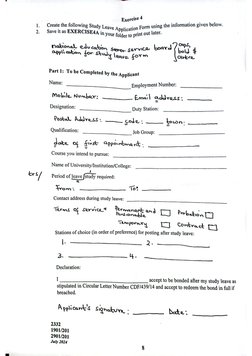 Exercise 4
1. Create the following Study Leave Application Form using the information given below.
2. Save it as EXERCISE4A in your folder to print out later.
national education senior service board } caps,
application for study leave form } bold &
centre
Part 1: To be Completed by the Applicant
Name: Employment Number:
Mobile Number: Email address:
Designation: Duty Station:
Postal Address: code: town:
Qualification: Job Group:
Date of first appointment:
Course you intend to pursue:
Name of University/Institution/College:
trs/ Period of leave study required:
From: To:
Contact address during study leave:
Terms of service* Permanent and Pensionable Probation
Temporary Contract
Stations of choice (in order of preference) for posting after study leave:
1. 2.
3. 4.
Declaration:
I accept to be bonded after my study leave as
stipulated in Circular Letter Number CDF/439/14 and accept to redeem the bond in full if
breached.
Applicant's signature: Date:
2332
1901/201
2901/201
July 2024
8